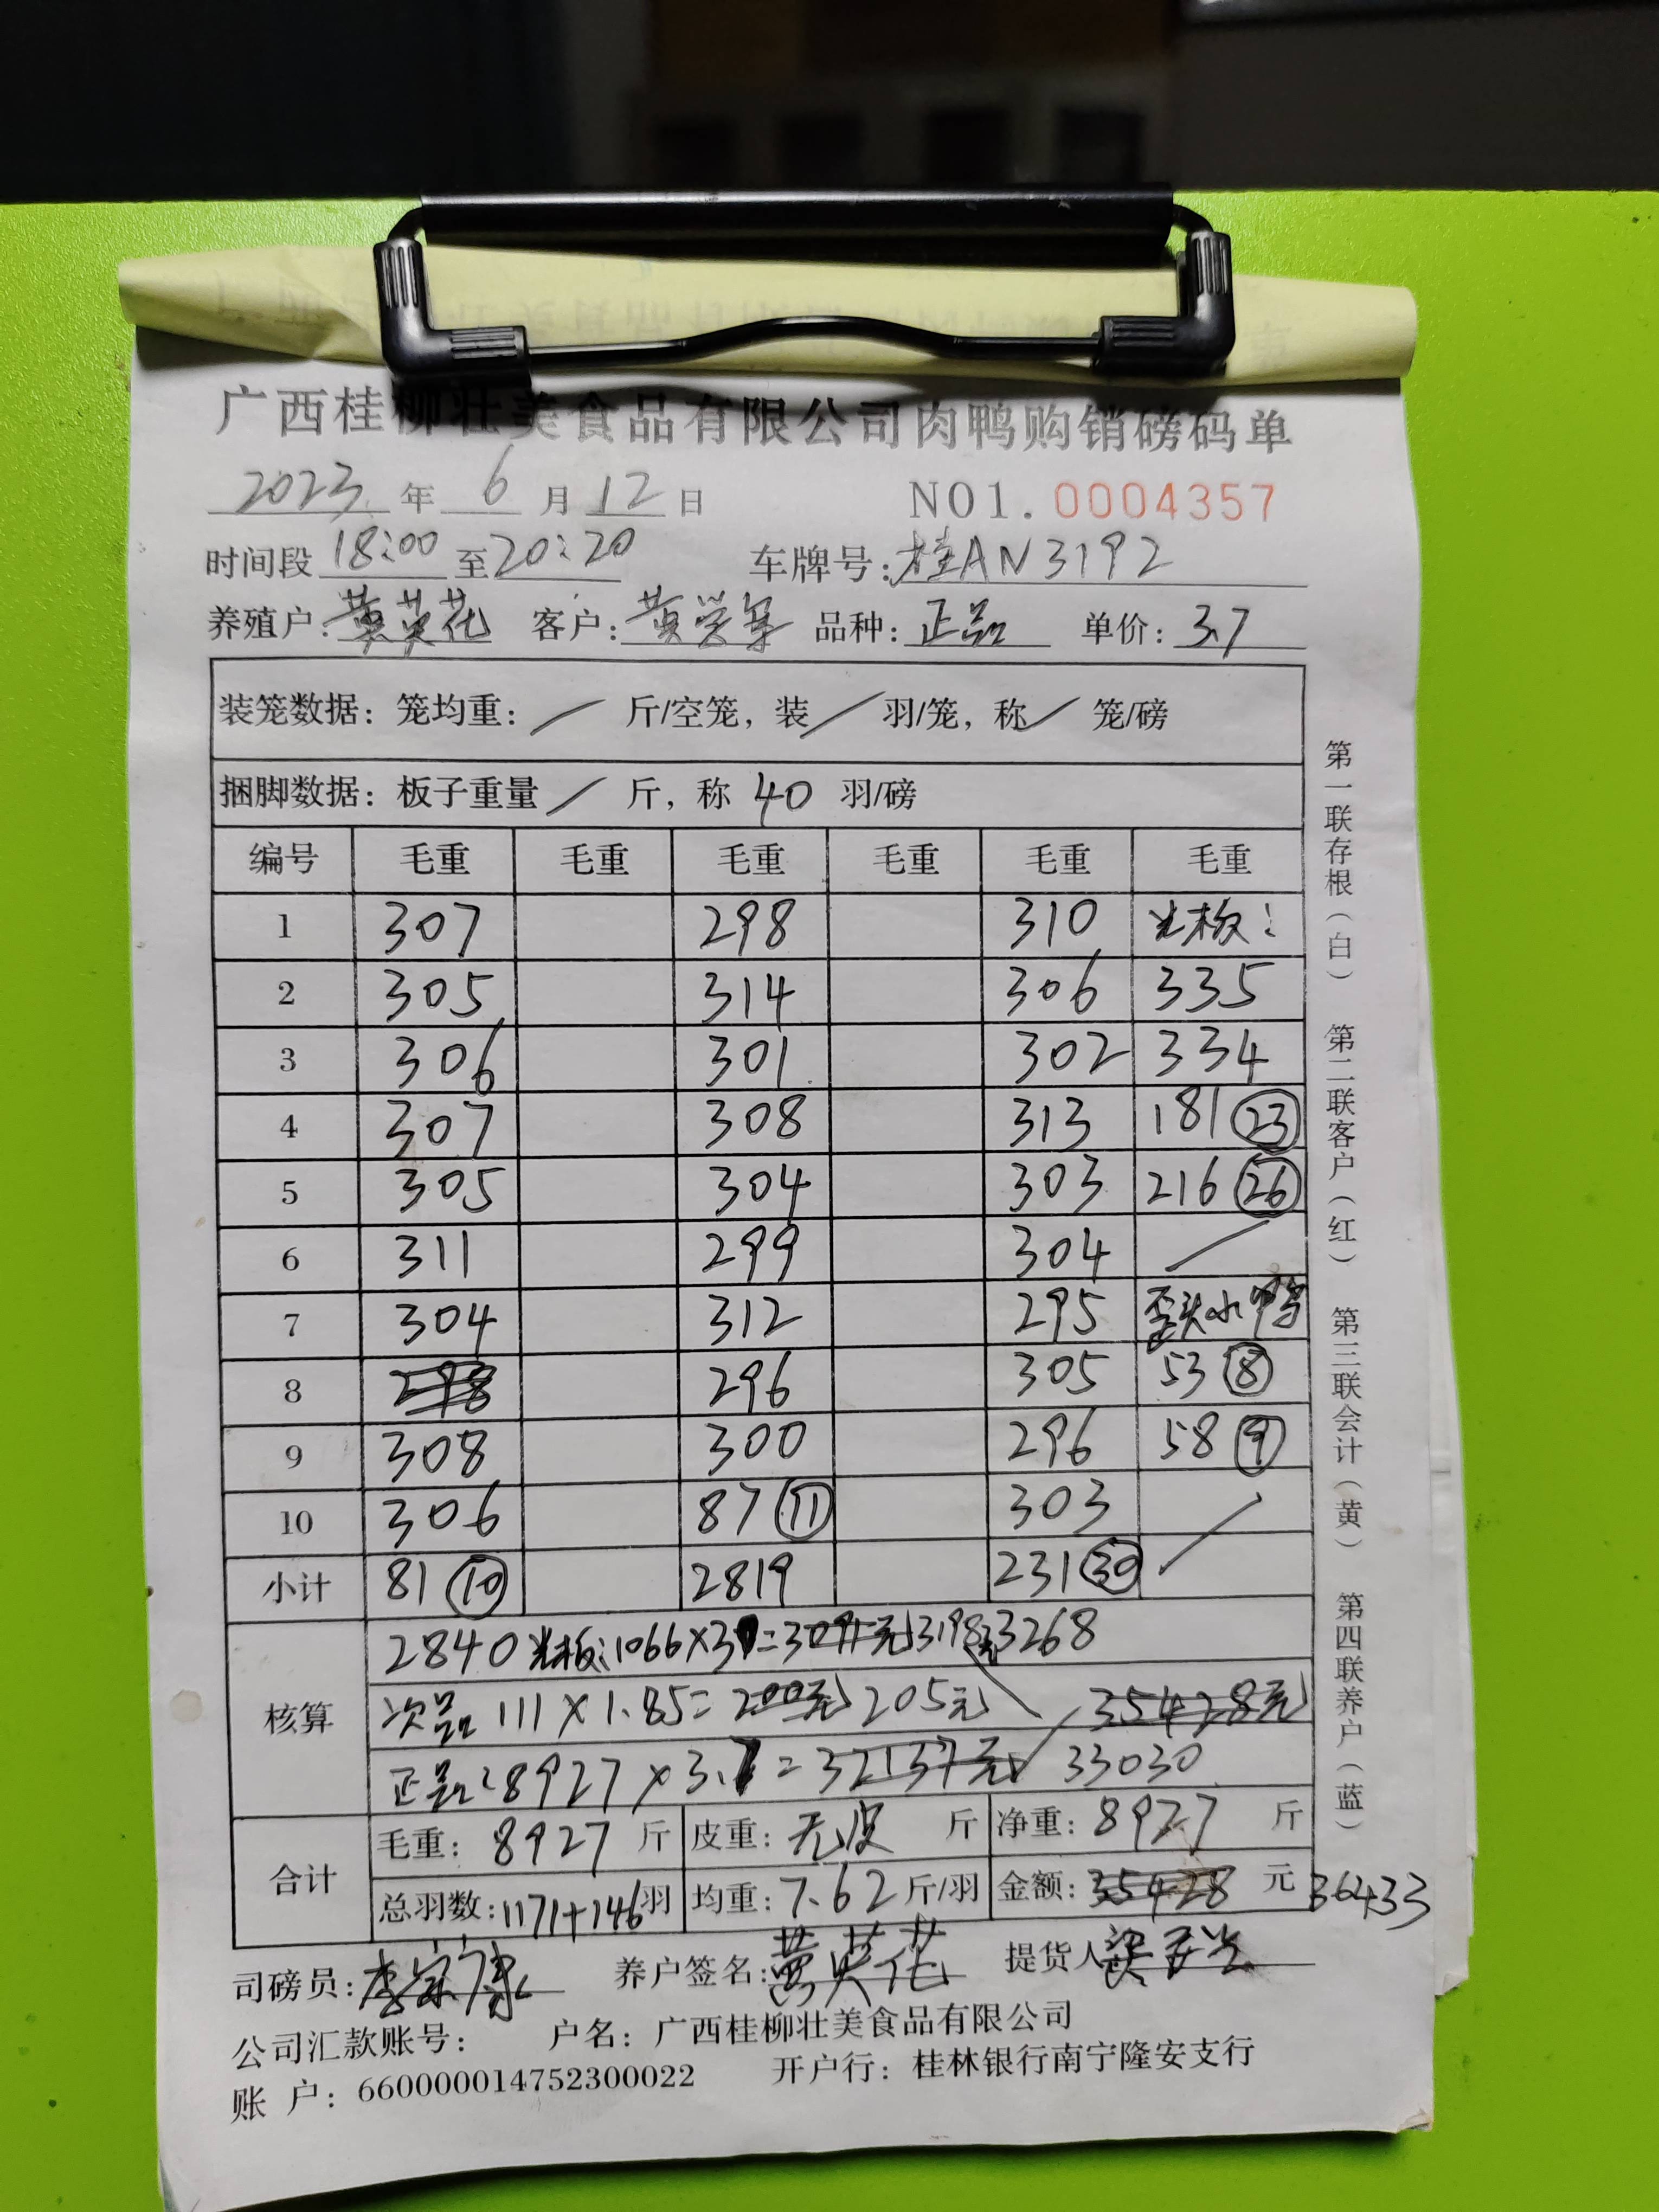 广西桂柳壮美食品有限公司肉鸭购销磅码单
2023 年 6 月 12 日 NO1. 0004357
时间段 18:00 至 20:20 车牌号: 桂AN3192
养殖户: 黄英花 客户: 品种: 正品 单价: 3.7
装笼数据: 笼均重: / 斤/空笼, 装 / 羽/笼, 称 / 笼/磅
捆脚数据: 板子重量 / 斤, 称 40 羽/磅
编号 毛重 毛重 毛重 毛重 毛重 毛重
1 307 298 310 光板:
2 305 314 306 335
3 306 301 302 334
4 307 308 313 181 ㉓
5 305 304 303 216 ㉖
6 311 299 304 /
7 304 312 295 歪头小鸭
8 298 296 305 53 ⑧
9 308 300 296 58 ⑨
10 306 87 ⑪ 303
小计 81 ⑩ 2819 231 ㉚ /
核算
2840 光板:1066×3 = 元 3198元 3268
次品 111×1.85= 200元 205元 35428元
正品:8927×3.7=32137元 33030
合计
毛重: 8927 斤 皮重: 无皮 斤 净重: 8927 斤
总羽数: 1171+146 羽 均重: 7.62 斤/羽 金额: 35428 元 36433
司磅员: 李宗康 养户签名: 黄英花 提货人
公司汇款账号: 户名: 广西桂柳壮美食品有限公司
账 户: 660000014752300022 开户行: 桂林银行南宁隆安支行
第一联存根(白) 第二联客户(红) 第三联会计(黄) 第四联养户(蓝)